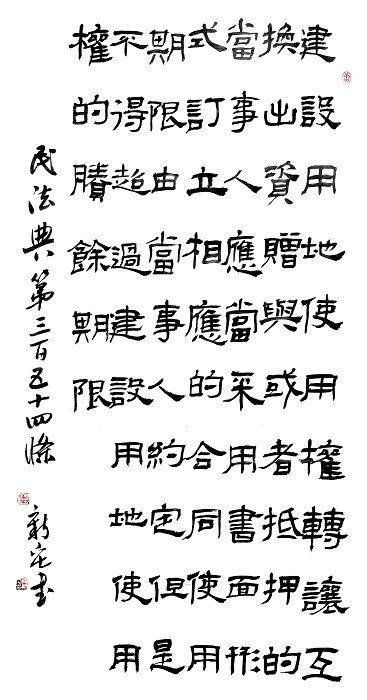 建設用地使用權轉讓互
換出資贈與或者抵押的
當事人應當采用書面形
式訂立相應的合同使用
期限由當事人約定但是
不得超過建設用地使用
權的賸餘期限
民法典第三百五十四條